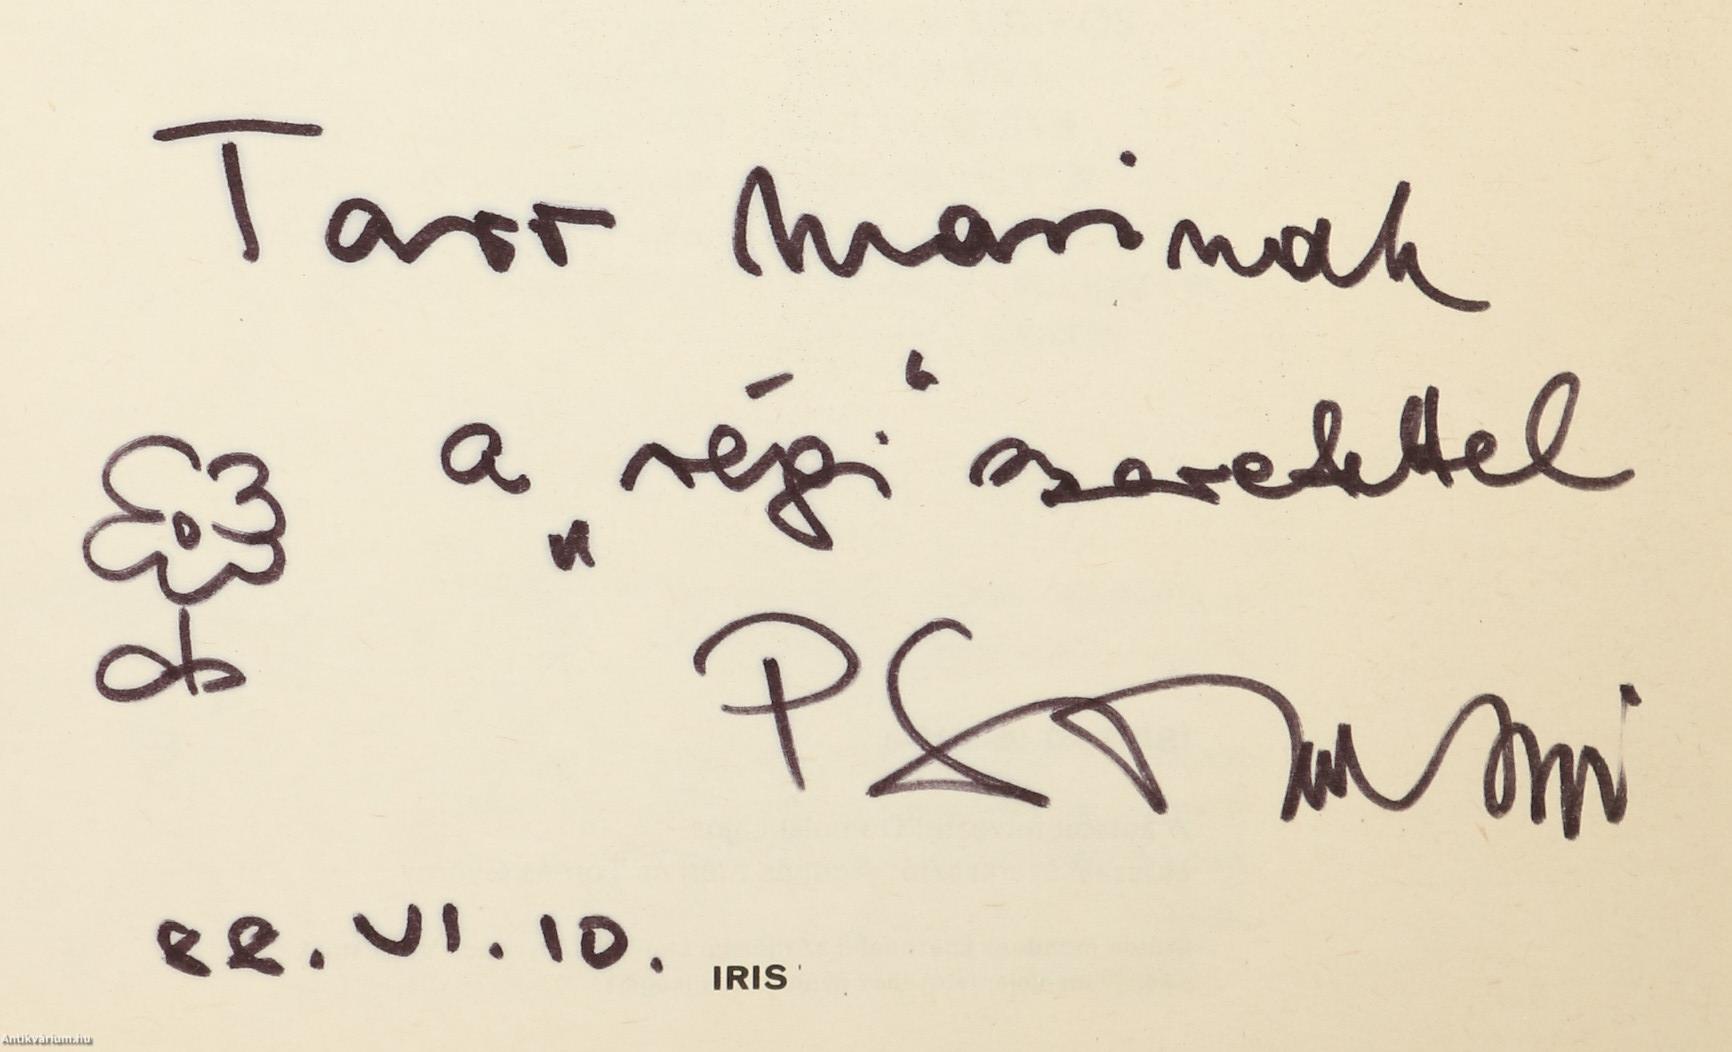 Tarr Marinak
a „régi“ szeretettel
P
88.VI.10.
IRIS
Antikvárium.hu